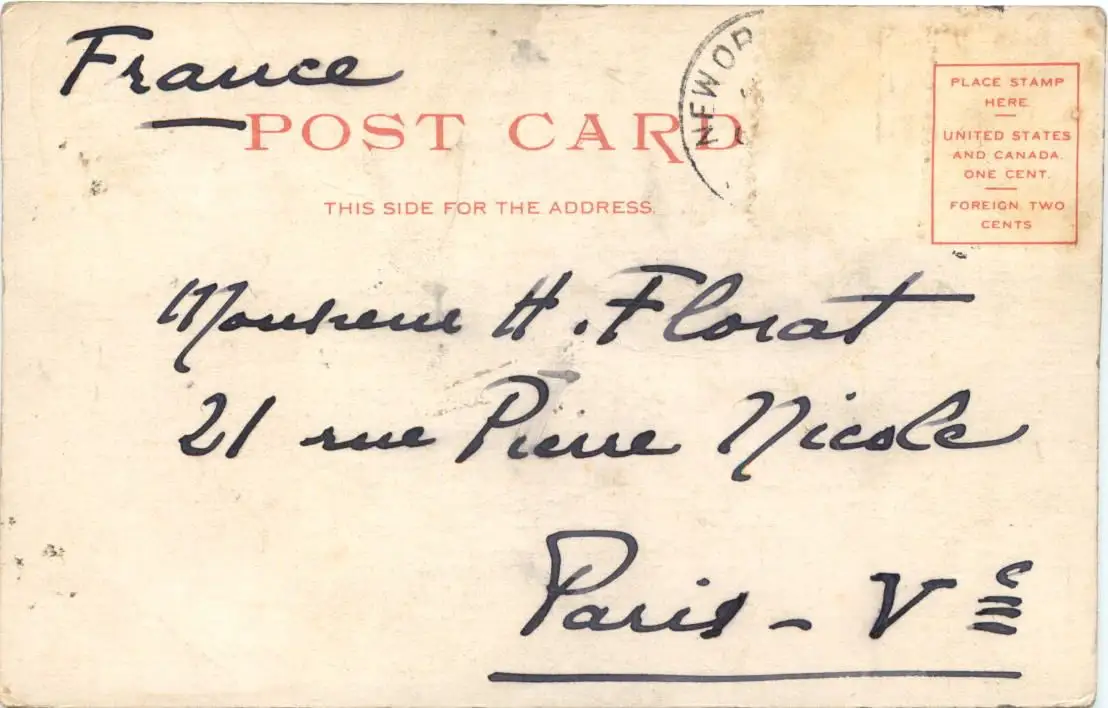 France
POST CARD
THIS SIDE FOR THE ADDRESS.
NEW OR
PLACE STAMP
HERE.
UNITED STATES
AND CANADA.
ONE CENT.
FOREIGN TWO
CENTS
Monsieur H. Florat
21 rue Pierre Nicole
Paris - Ve